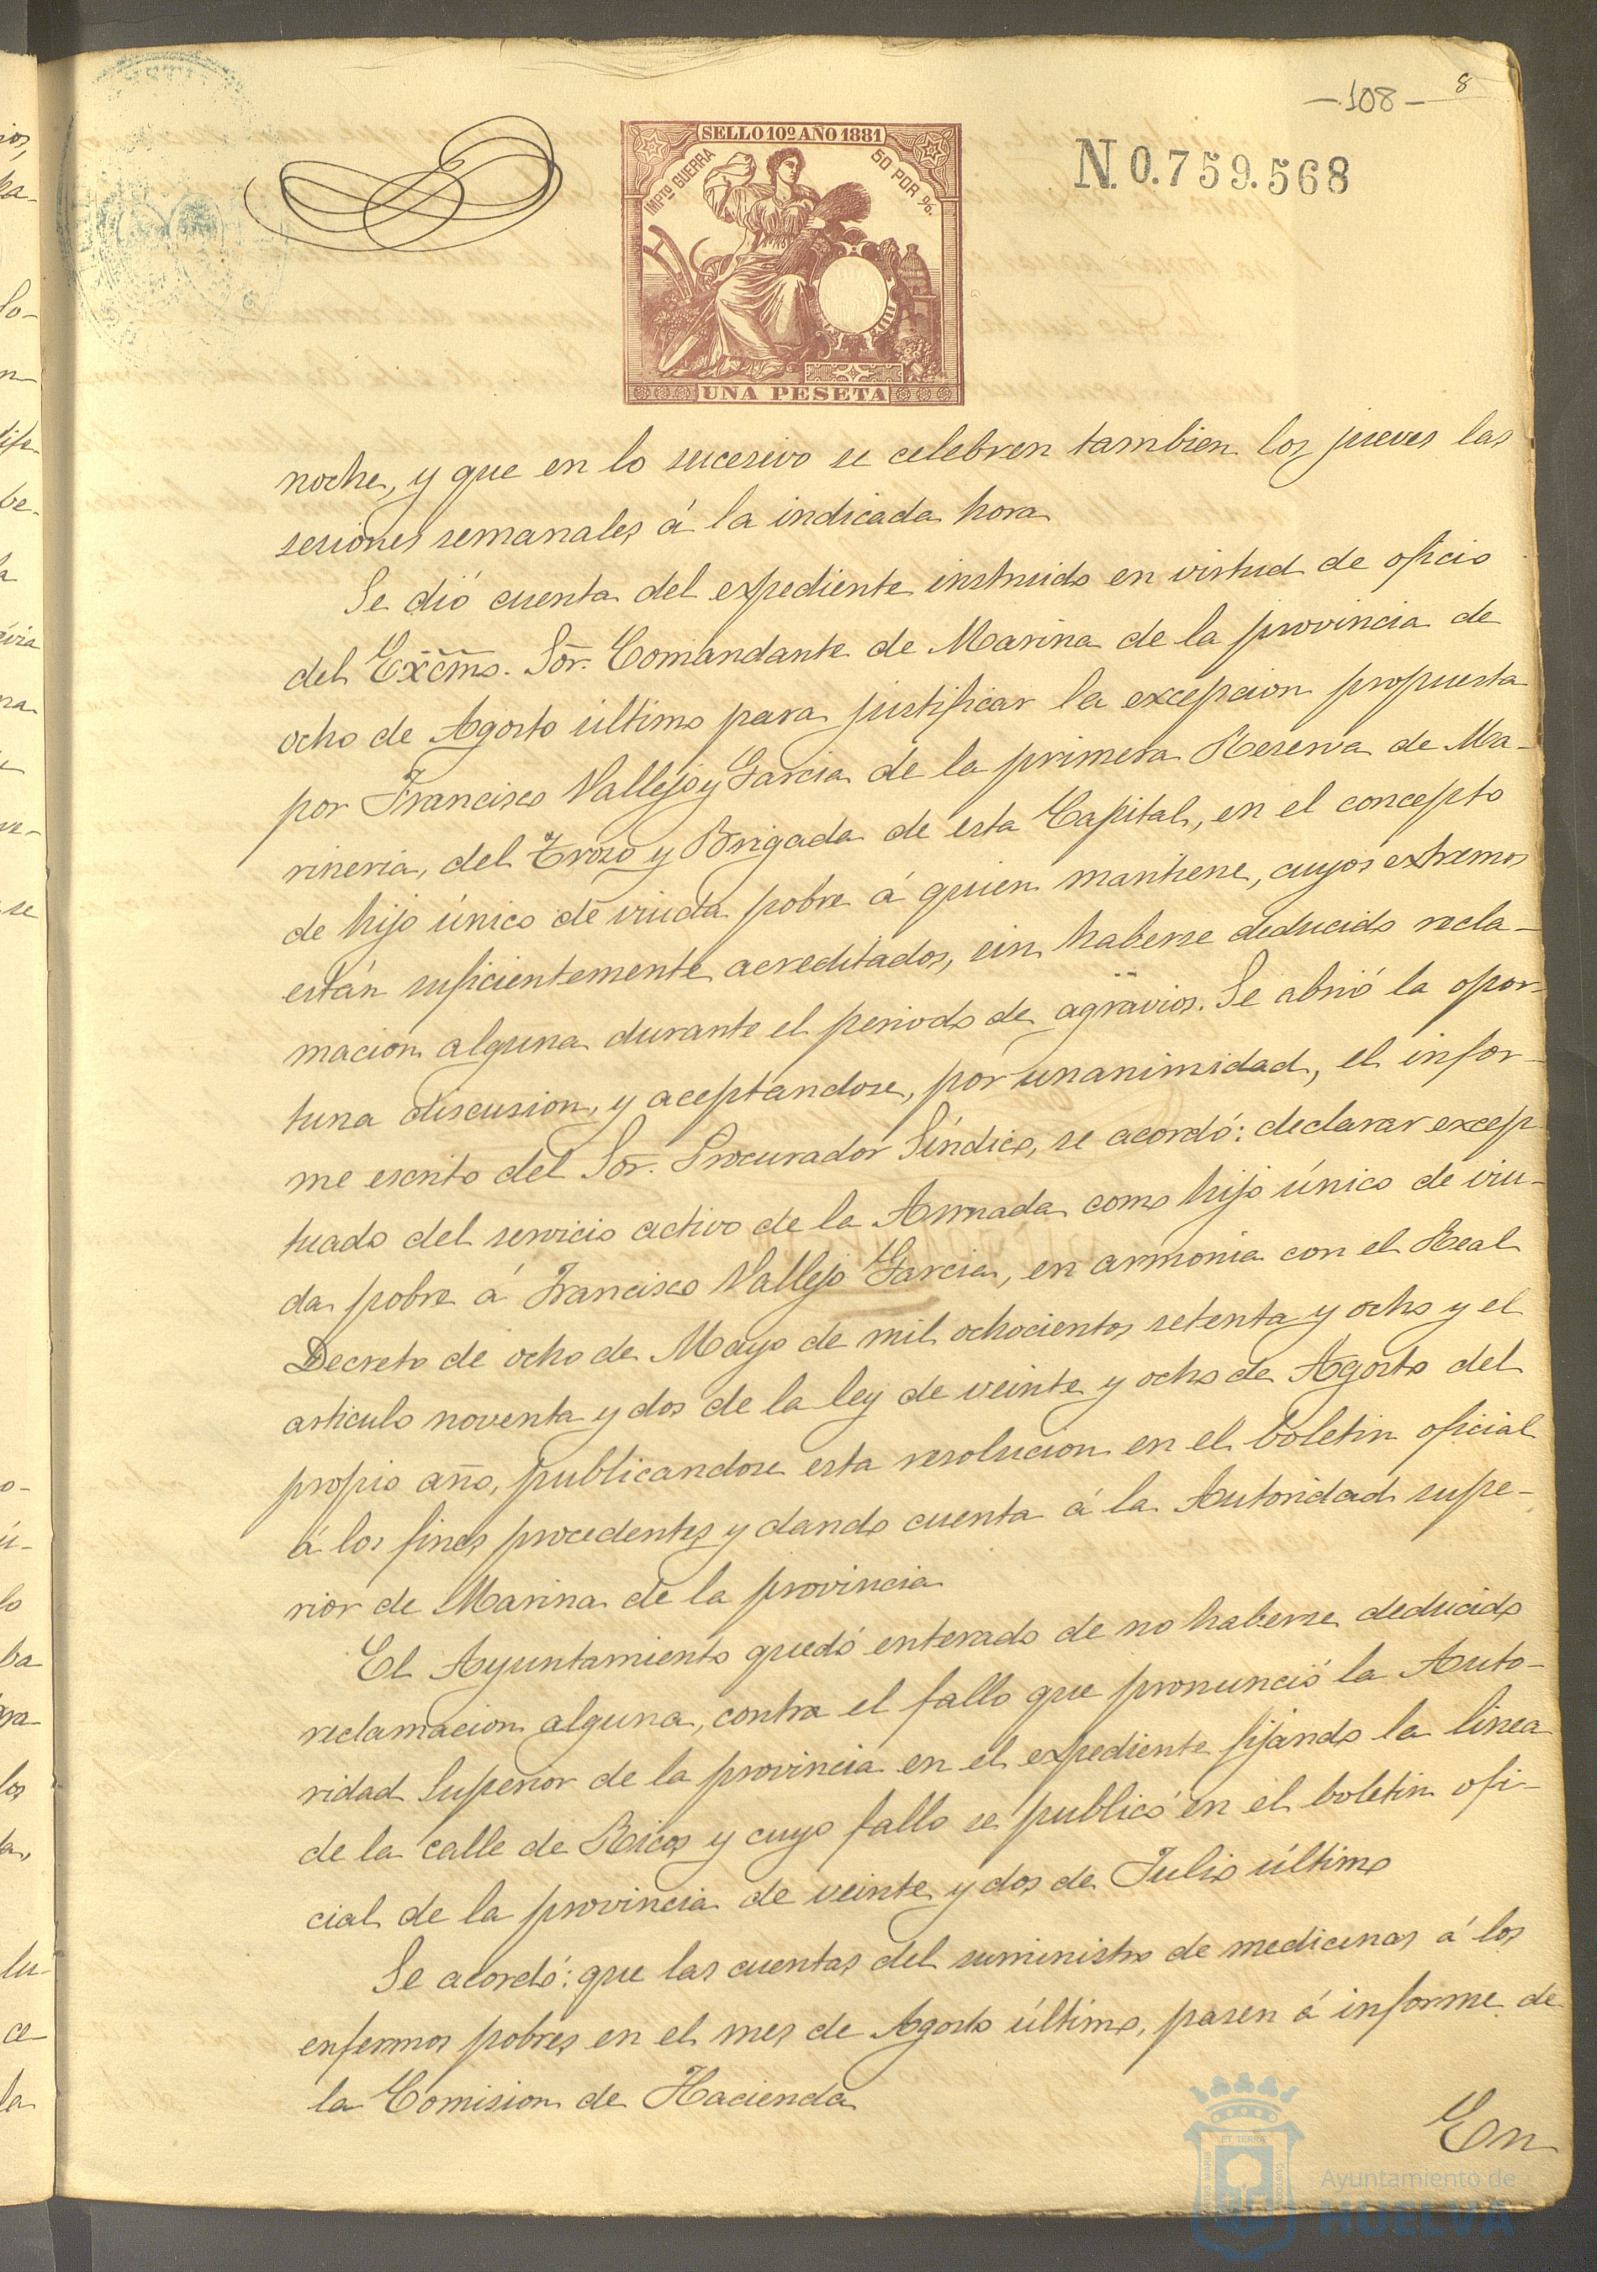 -108- 8
SELLO 10º AÑO 1881
IMPTO GUERRA
50 POR %.
UNA PESETA
N. 0.759.568
noche, y que en lo sucesivo se celebren tambien los jueves las
sesiones semanales á la indicada hora
Se dió cuenta del expediente instruido en virtud de oficio
del Excmo. Sor. Comandante de Marina de la provincia de
ocho de Agosto último para justificar la excepcion propuesta
por Francisco Vallejo y Garcia de la primera Reserva de Ma-
rineria, del Trozo y Brigada de esta Capital, en el concepto
de hijo único de viuda pobre á quien mantiene, cuyos extremos
están suficientemente acreditados, sin haberse deducido recla-
macion alguna durante el periodo de agravios. Se abrió la opor-
tuna discusion, y aceptandose, por unanimidad, el infor-
me escrito del Sor. Procurador Síndico, se acordó: declarar excep-
tuado del servicio activo de la Armada como hijo único de viu-
da pobre á Francisco Vallejo Garcia, en armonia con el Real
Decreto de ocho de Mayo de mil ochocientos setenta y ocho y el
articulo noventa y dos de la ley de veinte y ocho de Agosto del
propio año, publicandose esta resolucion en el boletin oficial
á los fines procedentes y dando cuenta á la Autoridad supe-
rior de Marina de la provincia
El Ayuntamiento quedó enterado de no haberse deducido
reclamacion alguna, contra el fallo que pronunció la Auto-
ridad Superior de la provincia en el expediente fijando la linea
de la calle de Ricos y cuyo fallo se publicó en el boletin ofi-
cial de la provincia de veinte y dos de Julio último
Se acordó: que las cuentas del suministro de medicinas á los
enfermos pobres en el mes de Agosto último, pasen á informe de
la Comision de Hacienda
En
Ayuntamiento de
HUELVA